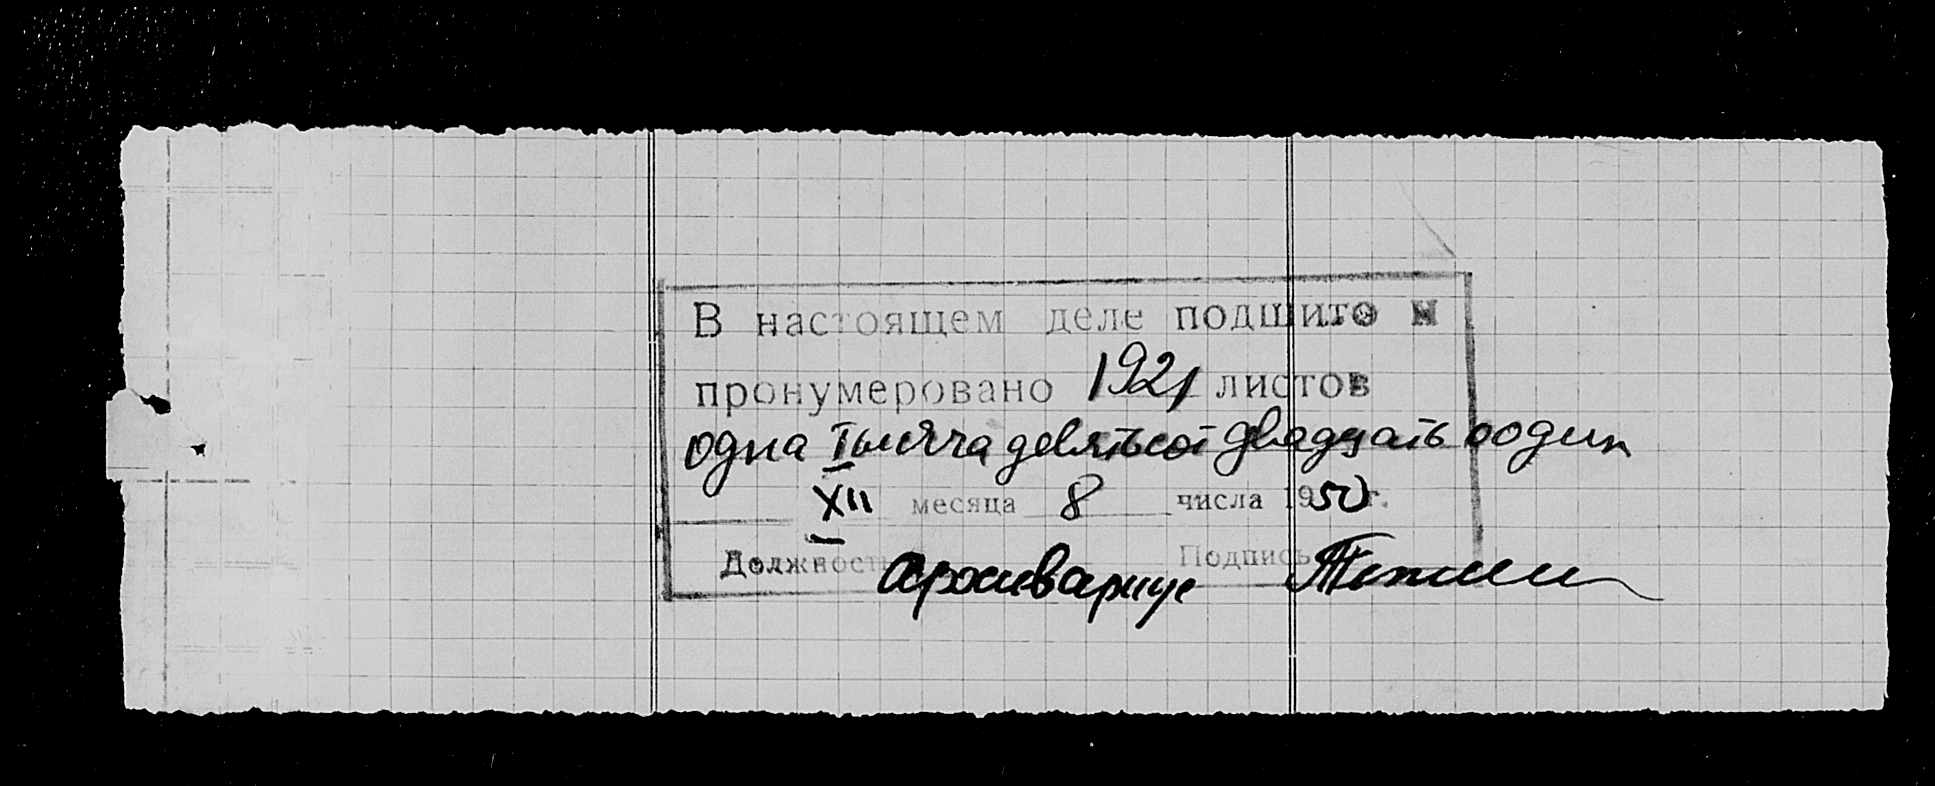 В настоящем деле подшито и
пронумеровано 1921 листов
одна тысяча девятьсот двадцать оодин
XII месяца 8 числа 1950 г.
Должность Архивариус Подпись